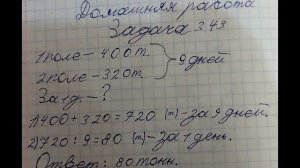 Домашняя работа
Задача 3.43
1 поле – 400 т.
2 поле – 320 т.
9 дней
За 1 д. – ?
1) 400 + 320 = 720 (т) – за 9 дней.
2) 720 : 9 = 80 (т) – за 1 день.
Ответ: 80 тонн.